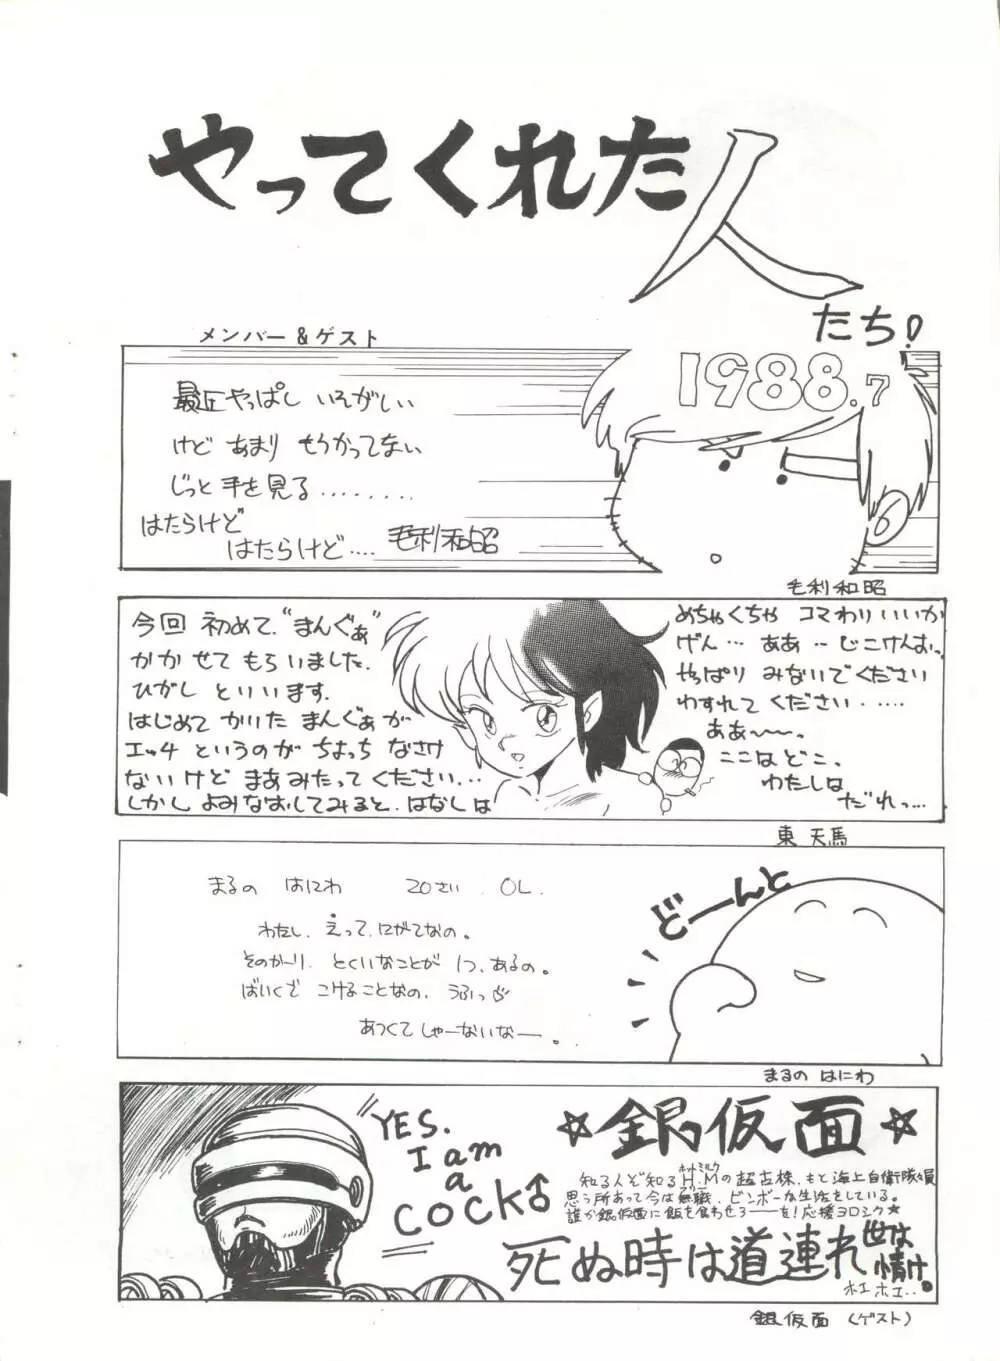 やってくれた人
たち!
メンバー&ゲスト
1988.7
最近やっぱし いそがしい
けど あまり もうかってない
じっと 手を見る........
はたらけど
はたらけど....
毛利和昭
毛利和昭
今回 初めて、"まんぐぁ"
かかせて もらいました.
ひがし といいます.
はじめて かいた まんぐぁが
エッチ というのが ちょっち なさけ
ないけど まあみたってください...
しかし よみなおしてみると、はなしは
めちゃくちゃ コマわり いいか
げん… ああ… じこけんお。
やっぱり みないでください
わすれて ください.....
ああ〜〜。
ここは どこ、
わたしは
だれっ...
東 天馬
まるの はにわ 20さい. OL.
わたし、えって、にがてなの。
そのかーり、とくいなことが 1つ、あるの。
ばいくで こけることなの、うふっ♡
あつくて しゃーないなー。
どーんと
まるの はにわ
YES.
I am
a
COCK♂
☆銀仮面☆
知る人ぞ知るH.M(ホットミルク)の超古株、もと海上自衛隊員
思う所あって今は無職(フリー)、ビンボーな生活をしている。
誰か銀仮面に飯を食わせろーーを!応援ヨロシク☆
死ぬ時は道連れ
世は
情け。
ホエ ホエ..
銀仮面 (ゲスト)